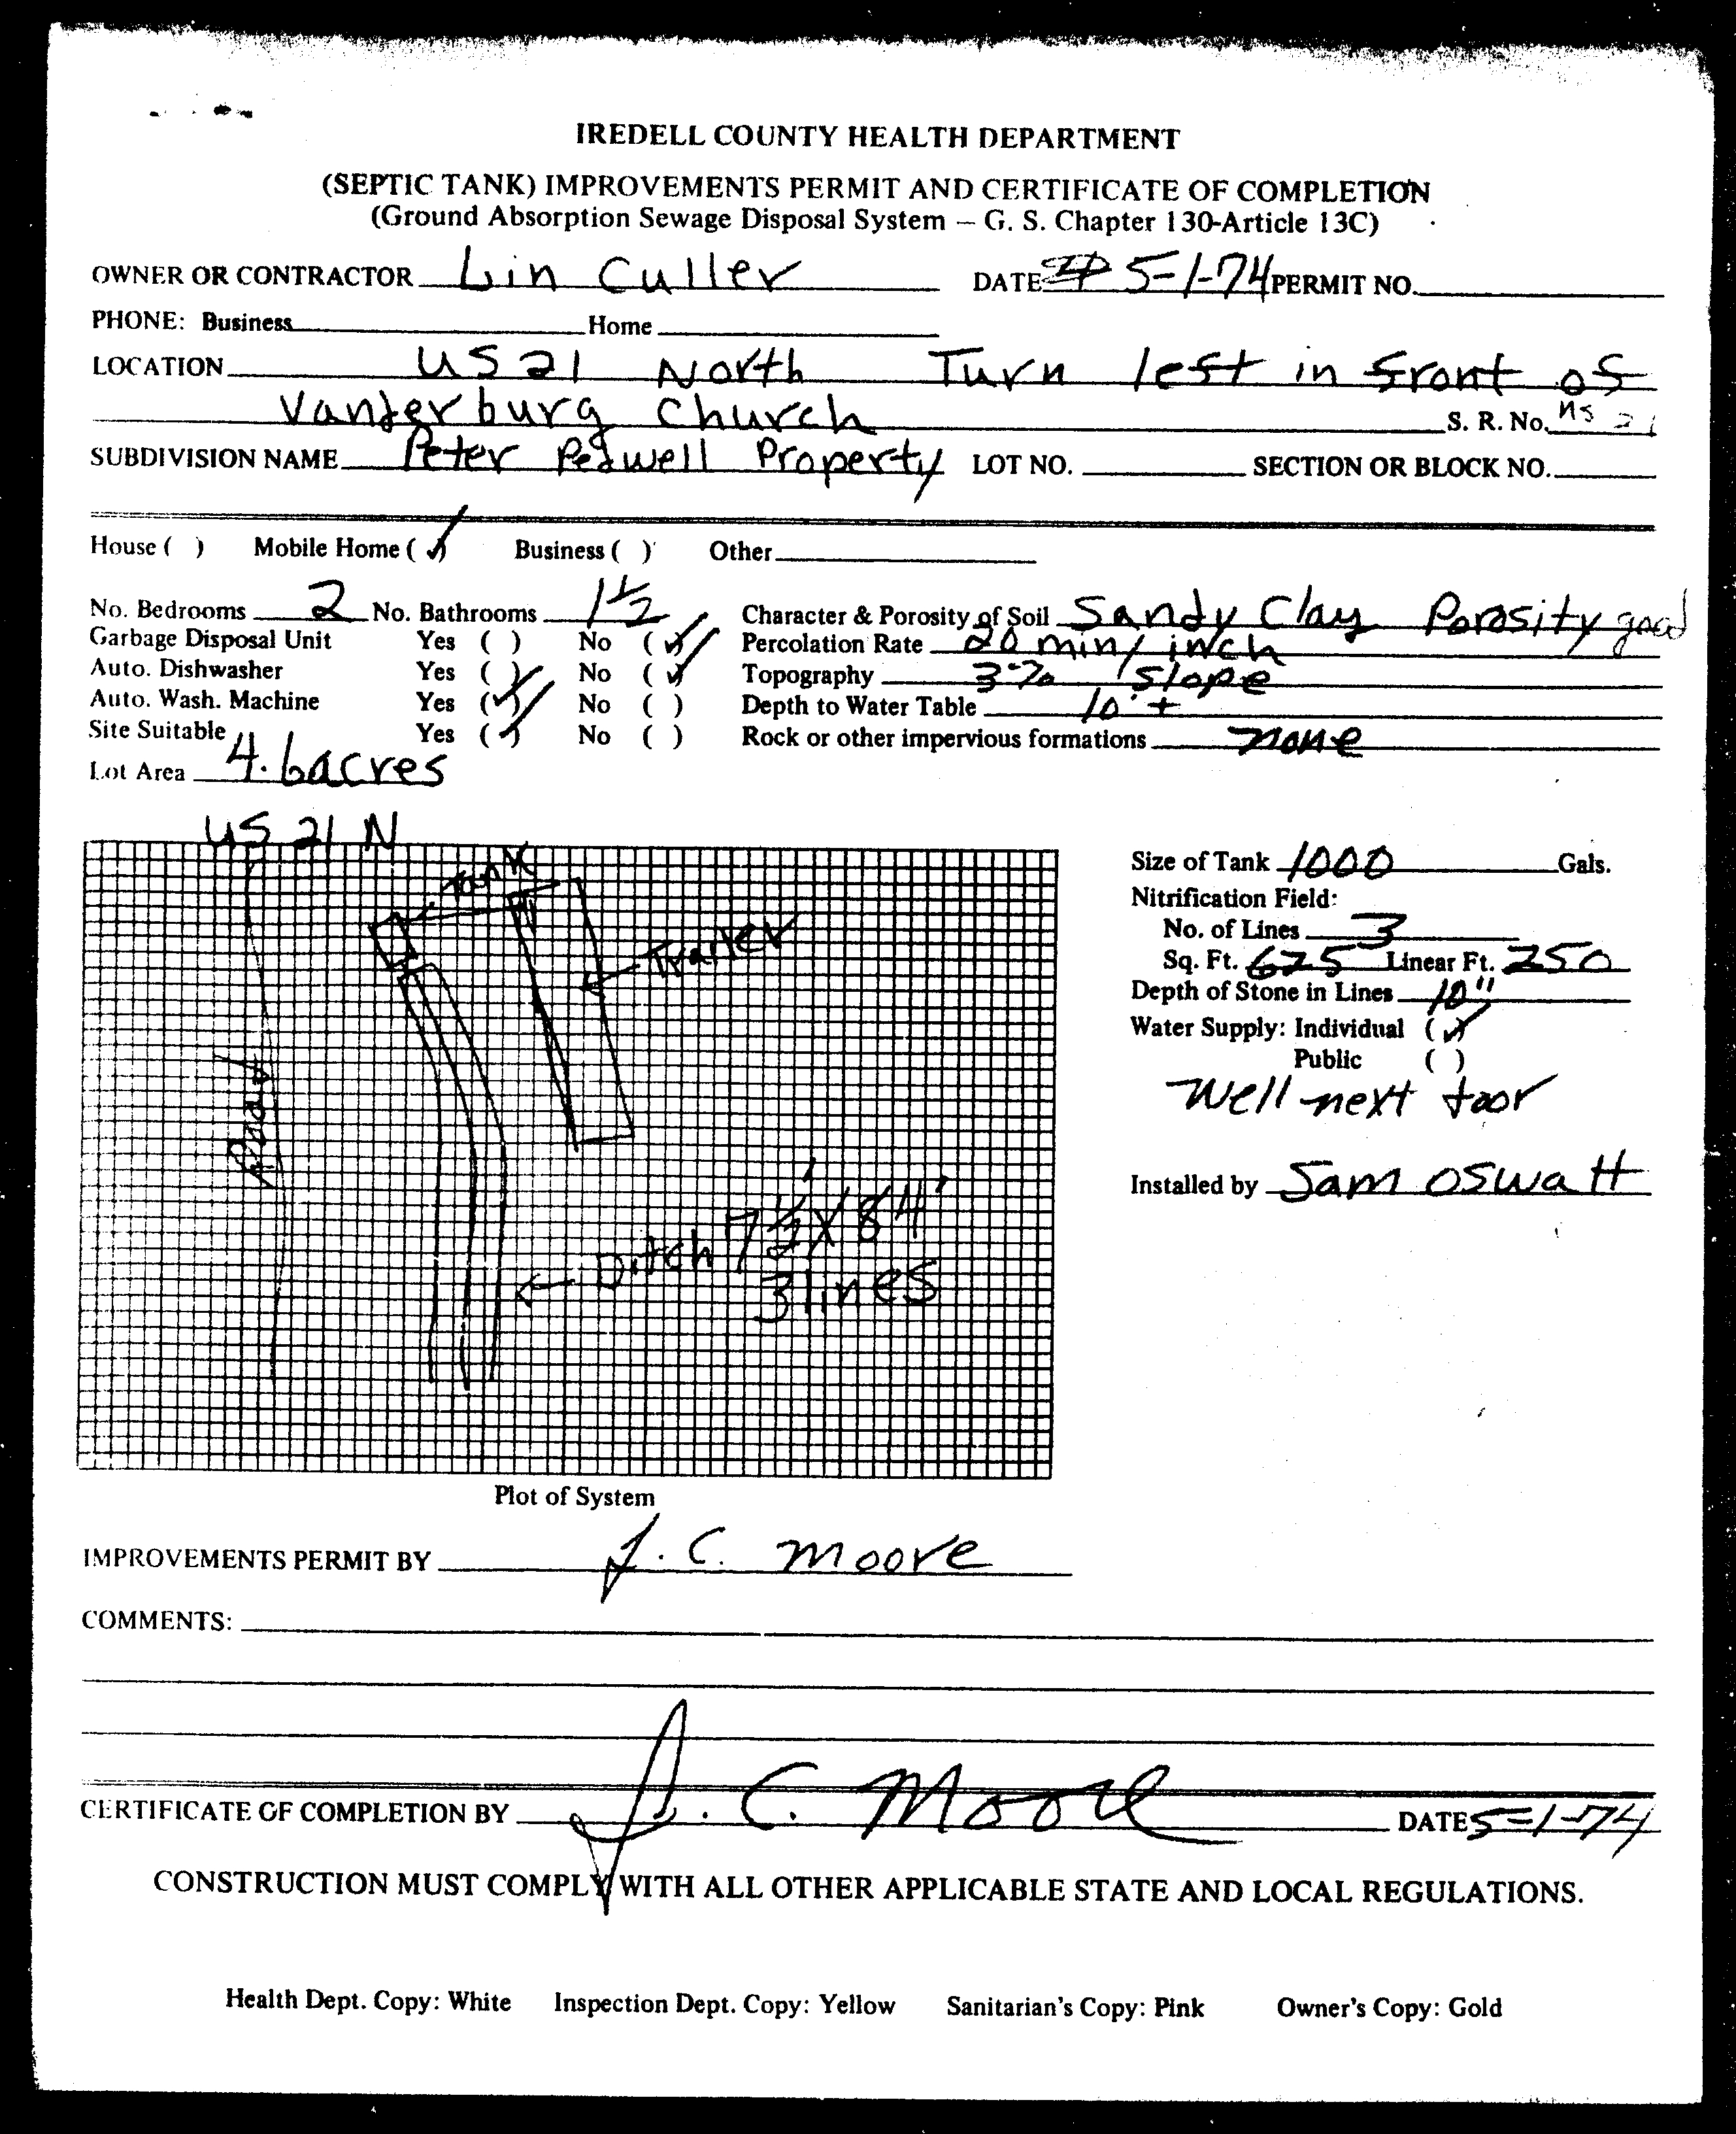 IREDELL COUNTY HEALTH DEPARTMENT
(SEPTIC TANK) IMPROVEMENTS PERMIT AND CERTIFICATE OF COMPLETION
(Ground Absorption Sewage Disposal System — G. S. Chapter 130-Article 13C)
OWNER OR CONTRACTOR Lin Culler DATE 5-1-74 PERMIT NO.
PHONE: Business Home
LOCATION US 21 North Turn left in front of
Vanderburg Church S. R. No. 21
SUBDIVISION NAME Peter Pedwell Property LOT NO. SECTION OR BLOCK NO.
House ( ) Mobile Home (✓) Business ( ) Other
No. Bedrooms 2 No. Bathrooms 1 1/2 Character & Porosity of Soil Sandy Clay Porosity good
Garbage Disposal Unit Yes ( ) No (✓) Percolation Rate 20 min/inch
Auto. Dishwasher Yes ( ) No (✓) Topography 3% slope
Auto. Wash. Machine Yes (✓) No ( ) Depth to Water Table 10' +
Site Suitable Yes (✓) No ( ) Rock or other impervious formations none
Lot Area 4.6 acres
US 21 N
Tank
Trailer
Road
Ditch 7 1/2' X 84'
3 lines
Size of Tank 1000 Gals.
Nitrification Field:
No. of Lines 3
Sq. Ft. 625 Linear Ft. 250
Depth of Stone in Lines 10"
Water Supply: Individual (✓)
Public ( )
Well next door
Installed by Sam Oswalt
Plot of System
IMPROVEMENTS PERMIT BY J. C. Moore
COMMENTS:
CERTIFICATE OF COMPLETION BY J. C. Moore DATE 5-1-74
CONSTRUCTION MUST COMPLY WITH ALL OTHER APPLICABLE STATE AND LOCAL REGULATIONS.
Health Dept. Copy: White Inspection Dept. Copy: Yellow Sanitarian's Copy: Pink Owner's Copy: Gold